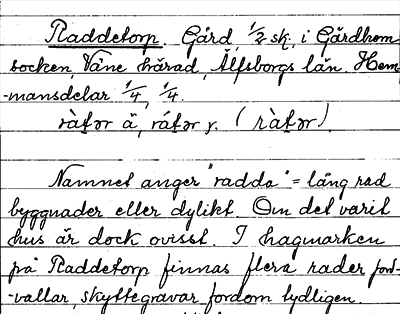 Raddetorp. Gård, 1/2 sk, i Gärdhem
socken, Väne härad, Älfsborgs län. Hem
-mansdelar 1/4, 1/4.
ràtər ä, rátər y. (ràtər).
Namnet anger "radda" = lång rad
byggnader eller dylikt. Om det varit
hus är dock ovisst. I hagmarken
på Raddetorp finnas flera rader jord-
-vallar, skyttegravar fordom tydligen.